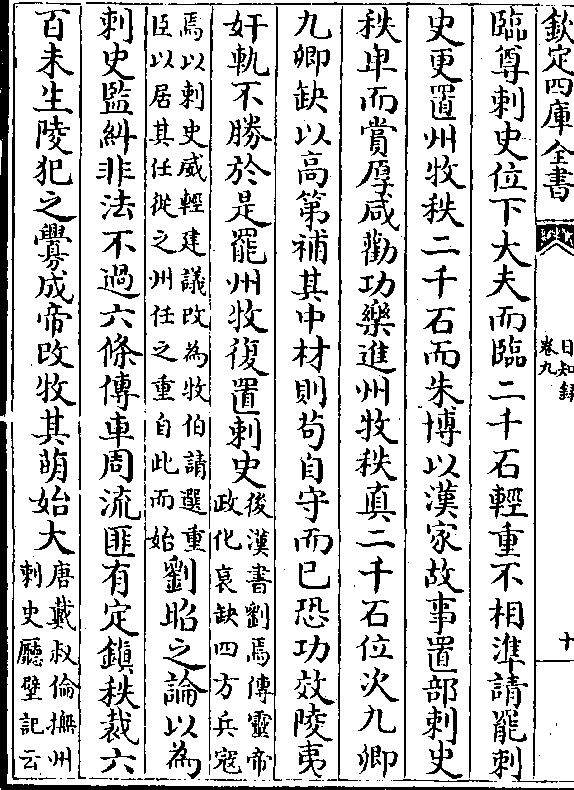 欽定四庫全書
日知録
卷九
十
臨尊刺史位下大夫而臨二千石輕重不相準請罷刺
史更置州牧秩二千石而朱博以漢家故事置部刺史
秩卑而賞厚咸勸功樂進州牧秩真二千石位次九卿
九卿缺以高第補其中材則苟自守而已恐功效陵夷
奸軌不勝於是罷州牧復置刺史
後漢書劉焉傳靈帝
政化衰缺四方兵寇
焉以刺史威輕建議改為牧伯請選重
臣以居其任從之州任之重自此而始
劉昭之論以為
刺史監糾非法不過六條傳車周流匪有定鎮秩裁六
百未生陵犯之釁成帝改牧其萌始大
唐戴叔倫撫州
刺史廳壁記云